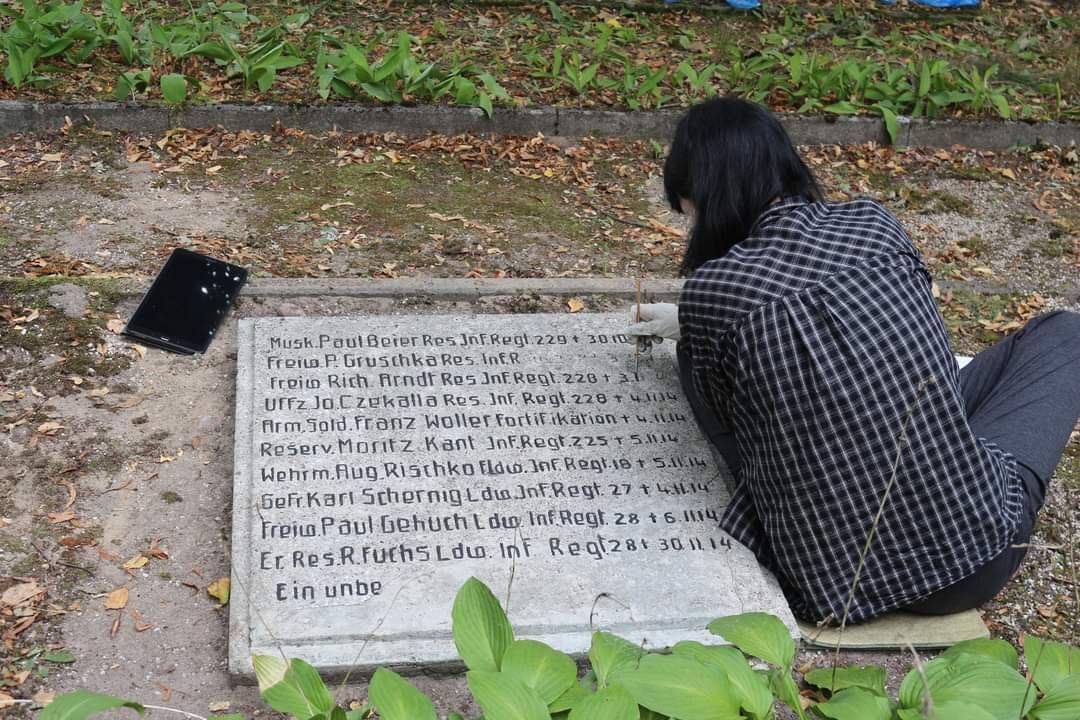 Musk. Paul Beier Res. Inf. Regt. 229 + 30.10.
Freiw. P. Gruschka Res. Inf. R
Freiw. Rich. Arndt Res. Inf. Regt. 228 + 3.1
Uffz. Jo. Czekalla Res. Inf. Regt. 228 + 4.11.14
Arm. Sold. Franz Woller Fortifikation + 4.11.14
Reserv. Moritz Kant Inf. Regt. 225 + 5.11.14
Wehrm. Aug. Rischko Eldw. Inf. Regt. 18 + 5.11.14
Gefr. Karl Schernig Ldw. Inf. Regt. 27 + 4.11.14
Freiw. Paul Gehuch Ldw. Inf. Regt. 28 + 6.11.14
Er. Res. R. Fuchs Ldw. Inf. Regt 28 + 30.11.14
Ein unbe